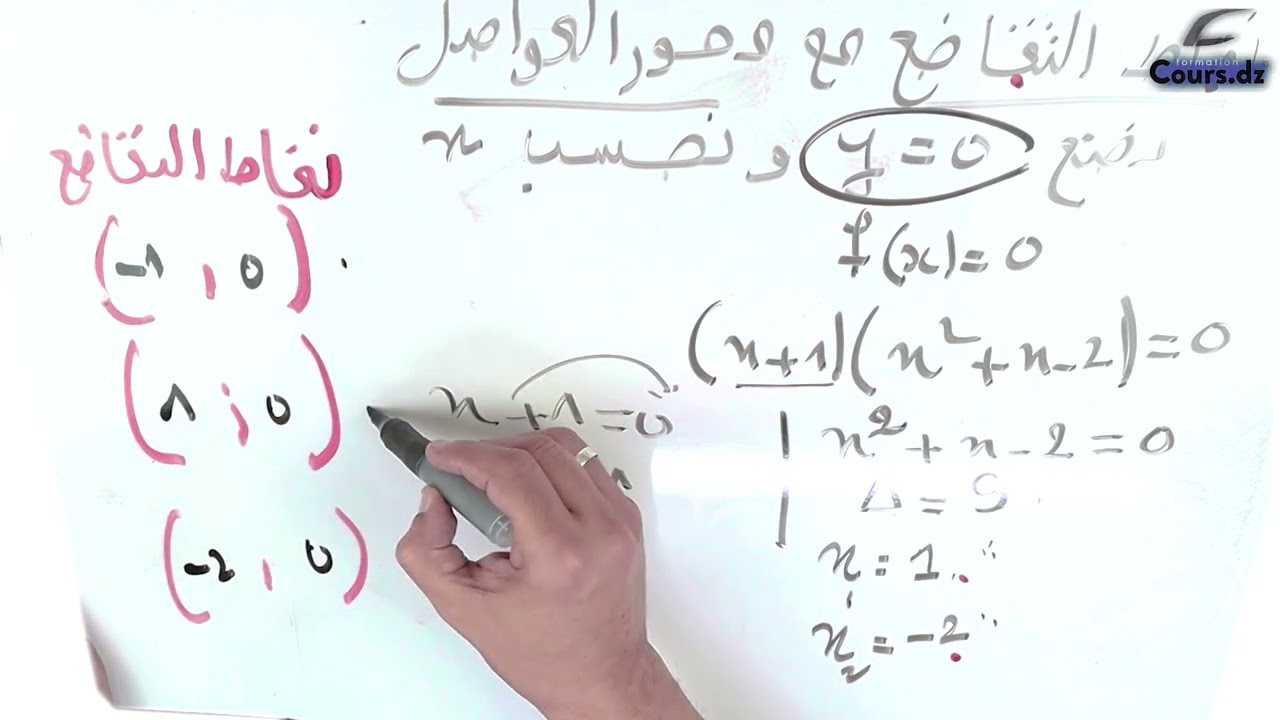 نقاط التقاطع مع محور الفواصل
نضع y = 0 و نحسب x
f(x) = 0
(x+1)(x²+x-2) = 0
x+1=0
x²+x-2=0
Δ = 9
x₁ = 1
x₂ = -2
نقاط التقاطع
(-1 , 0)
(1 ; 0)
(-2 , 0)
formation
Cours.dz